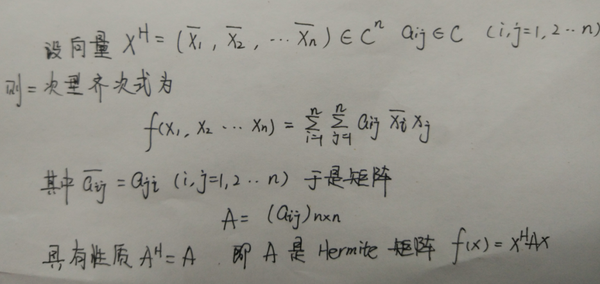 设向量 X^H = (x̄₁, x̄₂, ⋯ x̄ₙ) ∈ Cⁿ aij ∈ C (i,j=1,2⋯n)
则二次型齐次式为
f(x₁, x₂ ⋯ xₙ) = ∑_{i=1}^{n} ∑_{j=1}^{n} aij x̄i xj
其中 \overline{aij} = aji (i,j=1,2⋯n) 于是矩阵
A = (aij)n×n
具有性质 A^H = A 即 A 是 Hermite 矩阵 f(x) = x^H A x